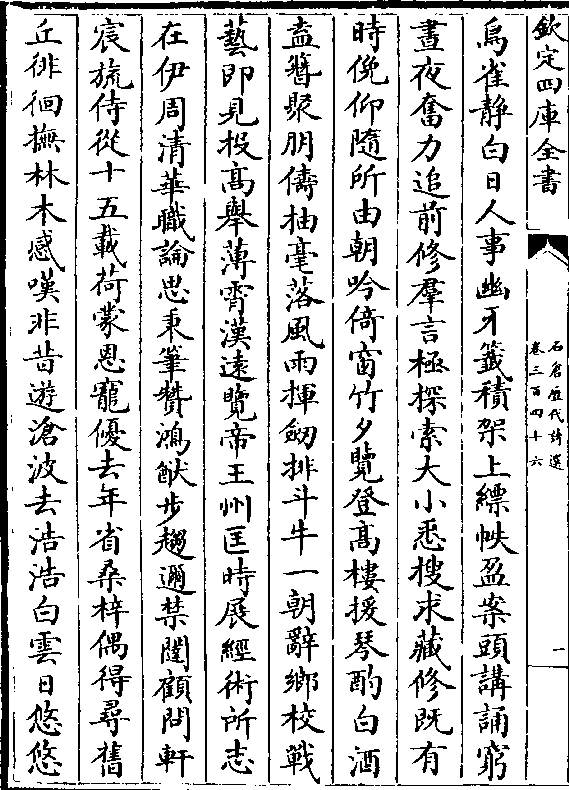 欽定四庫全書
石倉歷代詩選
卷三百四十六
一
鳥雀静白日人事幽牙籤積架上縹帙盈案頭講誦窮
晝夜奮力追前修羣言極探索大小悉搜求藏修既有
時俛仰隨所由朝吟倚窗竹夕覽登高樓援琴酌白酒
盍簪聚朋儔抽毫落風雨揮劒排斗牛一朝辭鄉校戰
藝即見投高舉薄霄漢遠覽帝王州匡時展經術所志
在伊周清華職論思秉筆贊鴻猷步趨邇禁闥顧問軒
宸旒侍從十五載荷蒙恩寵優去年省桑梓偶得尋舊
丘徘徊撫林木感嘆非昔遊滄波去浩浩白雲日悠悠